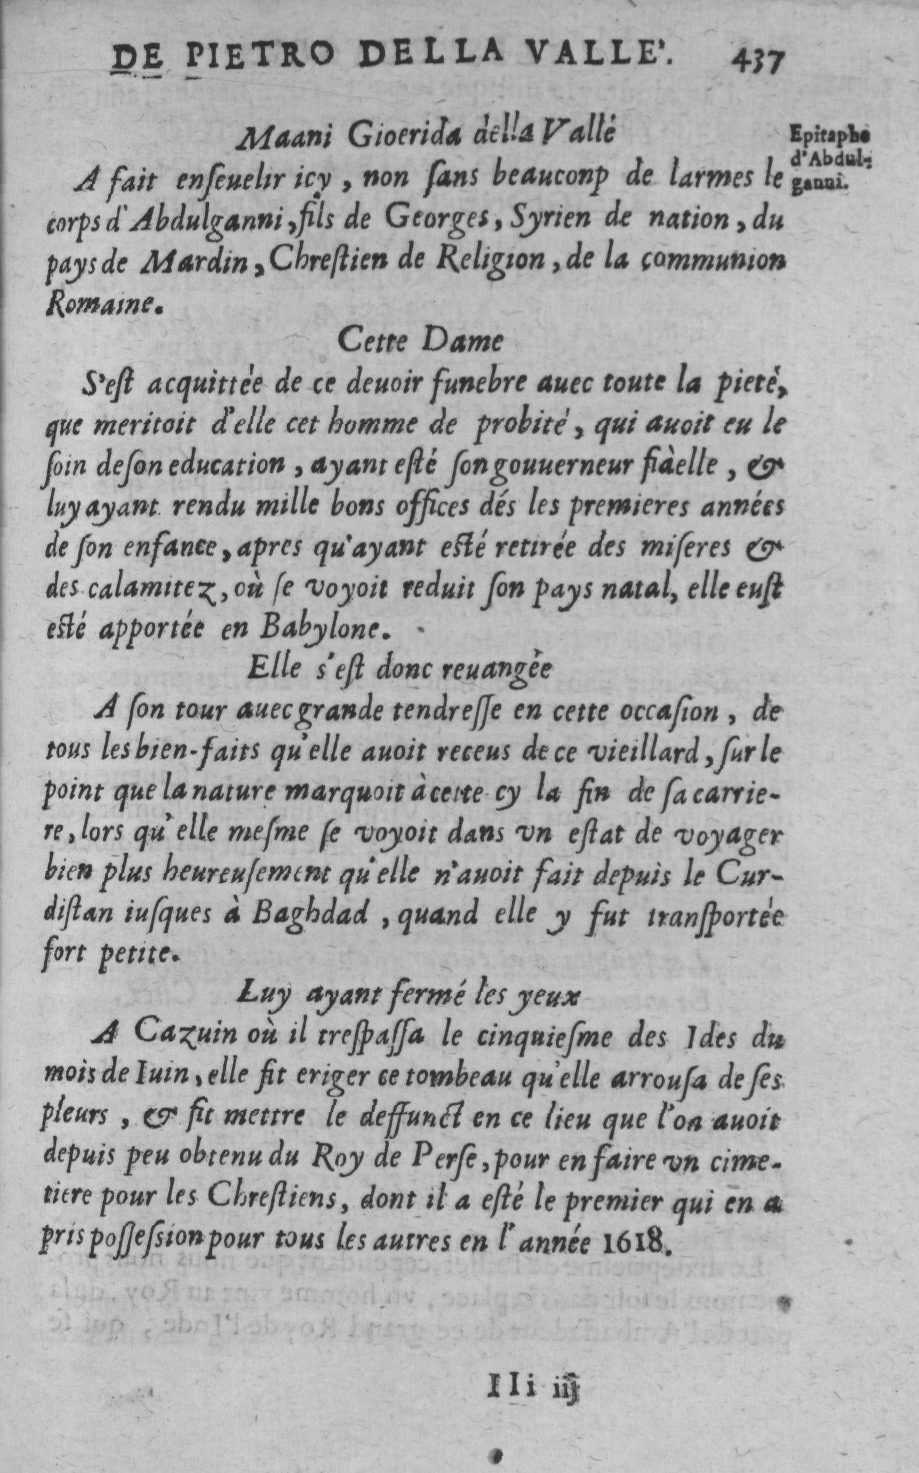 DE PIETRO DELLA VALLE'. 437
Maani Gioerida della Vallé
Epitaphe
d'Abdul-
ganni.
A fait enſeuelir icy, non ſans beaucoup de larmes le
corps d'Abdulganni, fils de Georges, Syrien de nation, du
pays de Mardin, Chreſtien de Religion, de la communion
Romaine.
Cette Dame
S'eſt acquittée de ce deuoir funebre auec toute la pieté,
que meritoit d'elle cet homme de probité, qui auoit eu le
ſoin de ſon education, ayant eſté ſon gouuerneur fidelle, &
luy ayant rendu mille bons offices dés les premieres années
de ſon enfance, apres qu'ayant eſté retirée des miſeres &
des calamitez, où ſe voyoit reduit ſon pays natal, elle euſt
eſté apportée en Babylone.
Elle s'eſt donc reuangée
A ſon tour auec grande tendreſſe en cette occaſion, de
tous les bien-faits qu'elle auoit receus de ce vieillard, ſur le
point que la nature marquoit à cette cy la fin de ſa carrie-
re, lors qu'elle meſme ſe voyoit dans vn eſtat de voyager
bien plus heureuſement qu'elle n'auoit fait depuis le Cur-
diſtan iuſques à Baghdad, quand elle y fut tranſportée
fort petite.
Luy ayant fermé les yeux
A Cazuin où il treſpaſſa le cinquieſme des Ides du
mois de Iuin, elle fit eriger ce tombeau qu'elle arrouſa de ſes
pleurs, & fit mettre le deffunct en ce lieu que l'on auoit
depuis peu obtenu du Roy de Perſe, pour en faire vn cime-
tiere pour les Chreſtiens, dont il a eſté le premier qui en a
pris poſſeſsion pour tous les autres en l'année 1618.
IIi iij